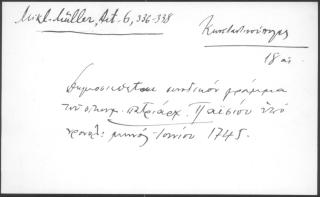 Mikl-Müller, Act. 6, 336-338
Κωνσταντινούπολις
18 αι.
Δημοσιεύεται συνοδικόν γράμμα
του οικουμ. πατριάρχ. Παϊσίου υπό
χρονολ: μηνός Ιουνίου 1745.